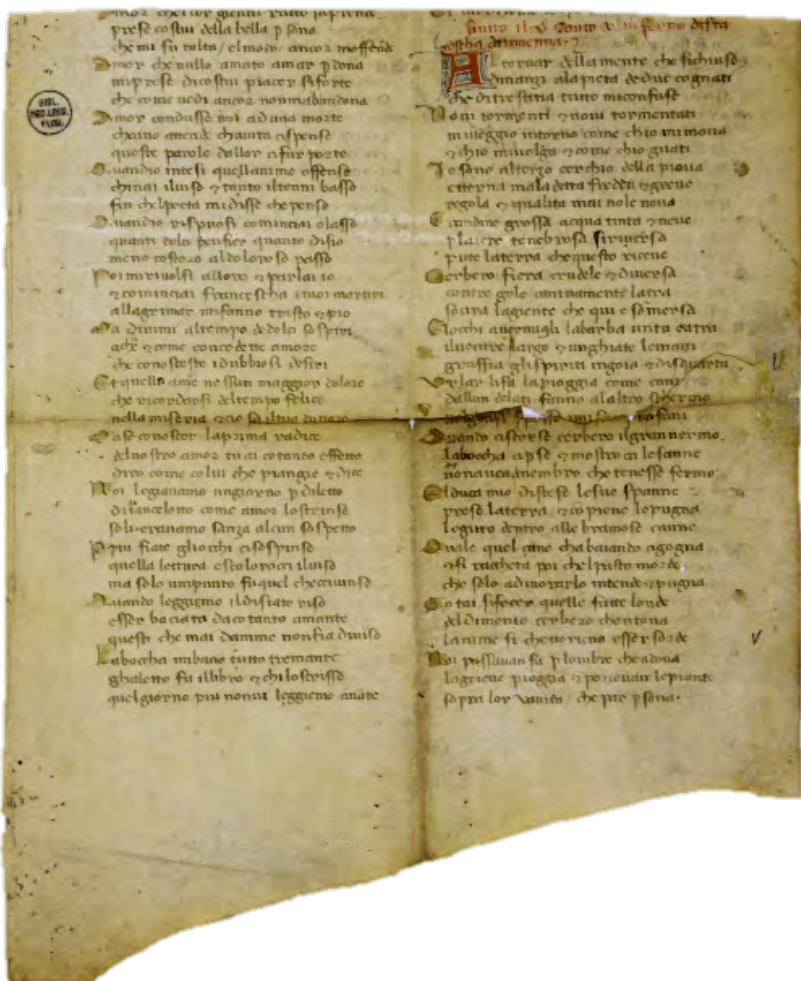 prese costui della bella p sona
che mi fu tolta / elmodo ancor moffende
Amor che nullo amato amar p dona
mi prese di costui piacer si forte
che come vedi ancor nonmabandona
Amor condusse noi aduna morte
chaino attende chauita cispense
queste parole dallor cifur porte
Quandio intesi quellanime offense
chinai iluiso & tanto iltenni basso
fin chelpoeta mi disse che pense
Quandio rispuosi cominciai olasso
quanti dolci pensier quanto disio
meno costoro aldoloroso passo
Poi mi riuolsi alloro & parlai io
& cominciai francescha i tuoi martiri
allagrimar mi fanno tristo & pio
Ma dimmi altempo de dolci sospiri
ache & come concedette amore
che conosceste idubbiosi desiri
Et quella ame nessun maggior dolore
che ricordarsi deltempo felice
nella miseria & cio sa iltuo dottore
Mase conoscer laprima radice
delnostro amor tu ai cotanto effetto
diro come colui che piangie & dice
Noi legiauamo ungiorno p diletto
dilancelotto come amor lostrinse
soli erauamo sanza alcun sospetto
P piu fiate gliocchi cisospinse
quella lettura & scolorocci iluiso
ma solo unpunto fuquel checciuinse
Quando leggiemo ildisiato riso
esser baciata daco tanto amante
questi che mai damme nonfia diuiso
Laboccha mibacio tutto tremante
ghaleotto fu illibro & chi loscrisse
quelgiorno piu nonui leggiemo auante
Al tornar della mente che sichiuse
dinanzi alapieta dedue cognati
che ditrestitia tutto miconfuse
Noui tormenti & noui tormentati
mi ueggio intorno come chio mi moua
& chio miuolga & come chio guati
Io sono alterzo cerchio della pioua
etterna maladetta fredda & greue
regola & qualita mai nole noua
Grandine grossa acqua tinta & neue
p laiere tenebroso siriuersa
pute laterra che questo riceue
Cerbero fiera crudele & diuersa
contre gole caninamente latra
soura lagiente che qui e somersa
Gliocchi auermigli labarba unta eatra
iluentre largo & unghiate lemani
graffia glispiriti ingoia & disquatra
Vrlar lifa lapioggia come cani
dallun delati fanno alaltro schermo
Quando ciscorse cerbero ilgran uermo
laboccha cip se & mostroci lesanne
nonauea membro che tenesse fermo
Elduca mio distese lesue spanne
prese laterra & co piene lepugna
legitto dentro alle bramose canne
Quale quel cane chabaiando agogna
& si racheta poi chelpasto morde
che solo adiuorarlo intende & pugna
Cotai sifecer quelle facce lorde
deldimonio cerbero chentona
lanime si cheuorieno esser sorde
Noi passauam su p lombre cheadona
lagrieue pioggia & ponauam lepiante
sopra lor vanita / che par p sona.